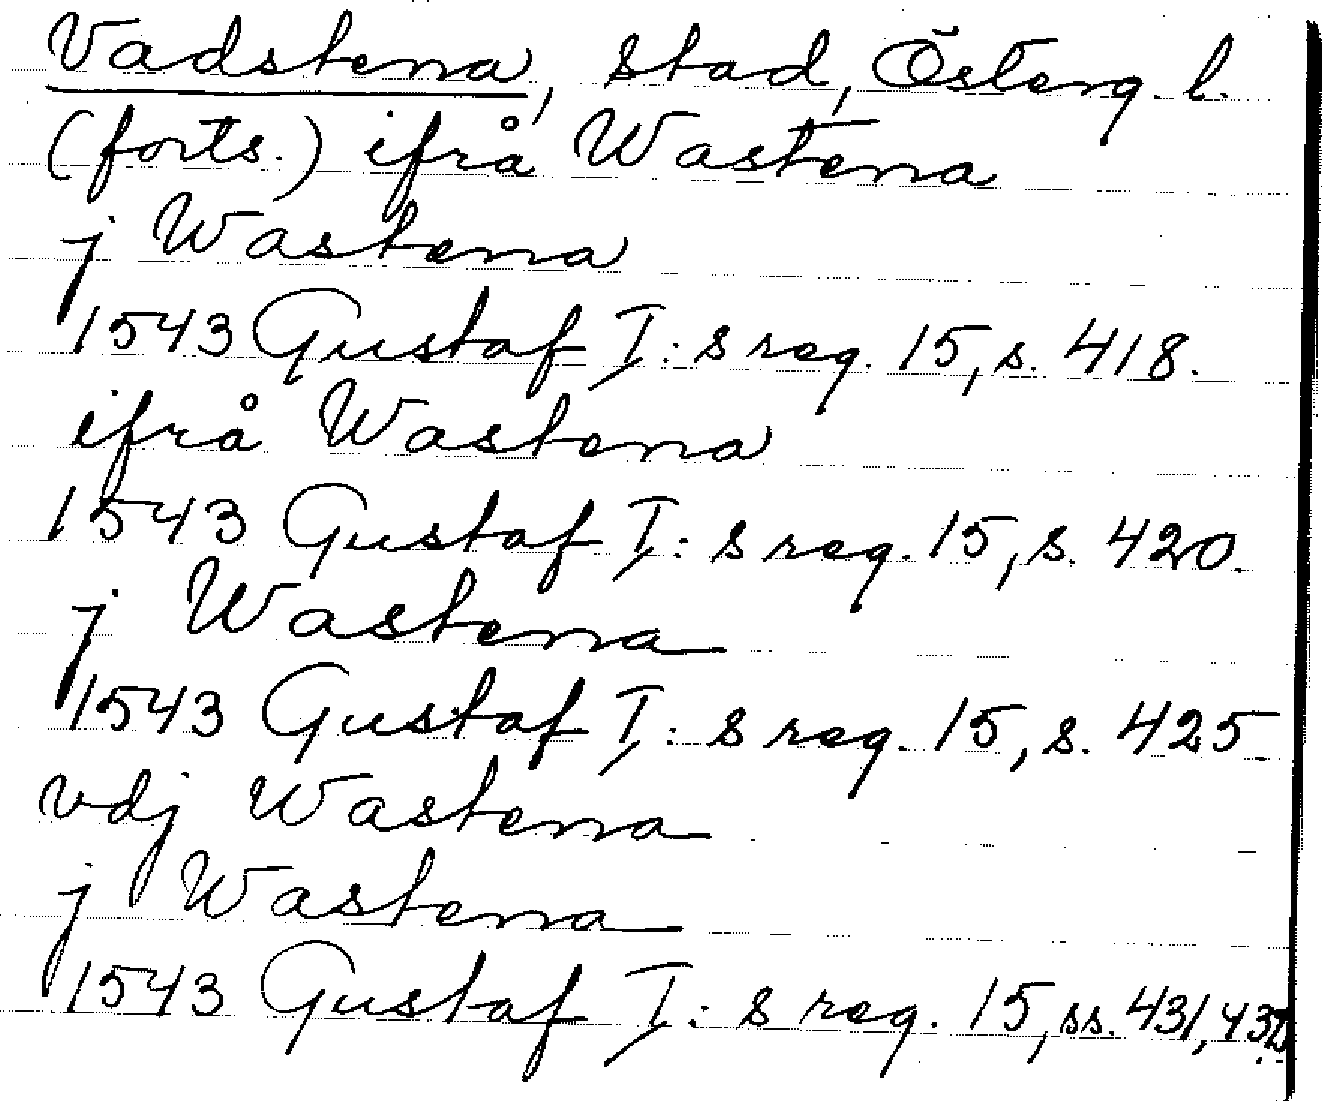 Vadstena, stad, Österg. l.
(forts.) ifrå Wastena
j Wastena
1543 Gustaf I:s reg. 15, s. 418.
ifrå Wastena
1543 Gustaf I:s reg. 15, s. 420.
j Wastena
1543 Gustaf I:s reg. 15, s. 425
vdj Wastena
j Wastena
1543 Gustaf I:s reg. 15, ss. 431,